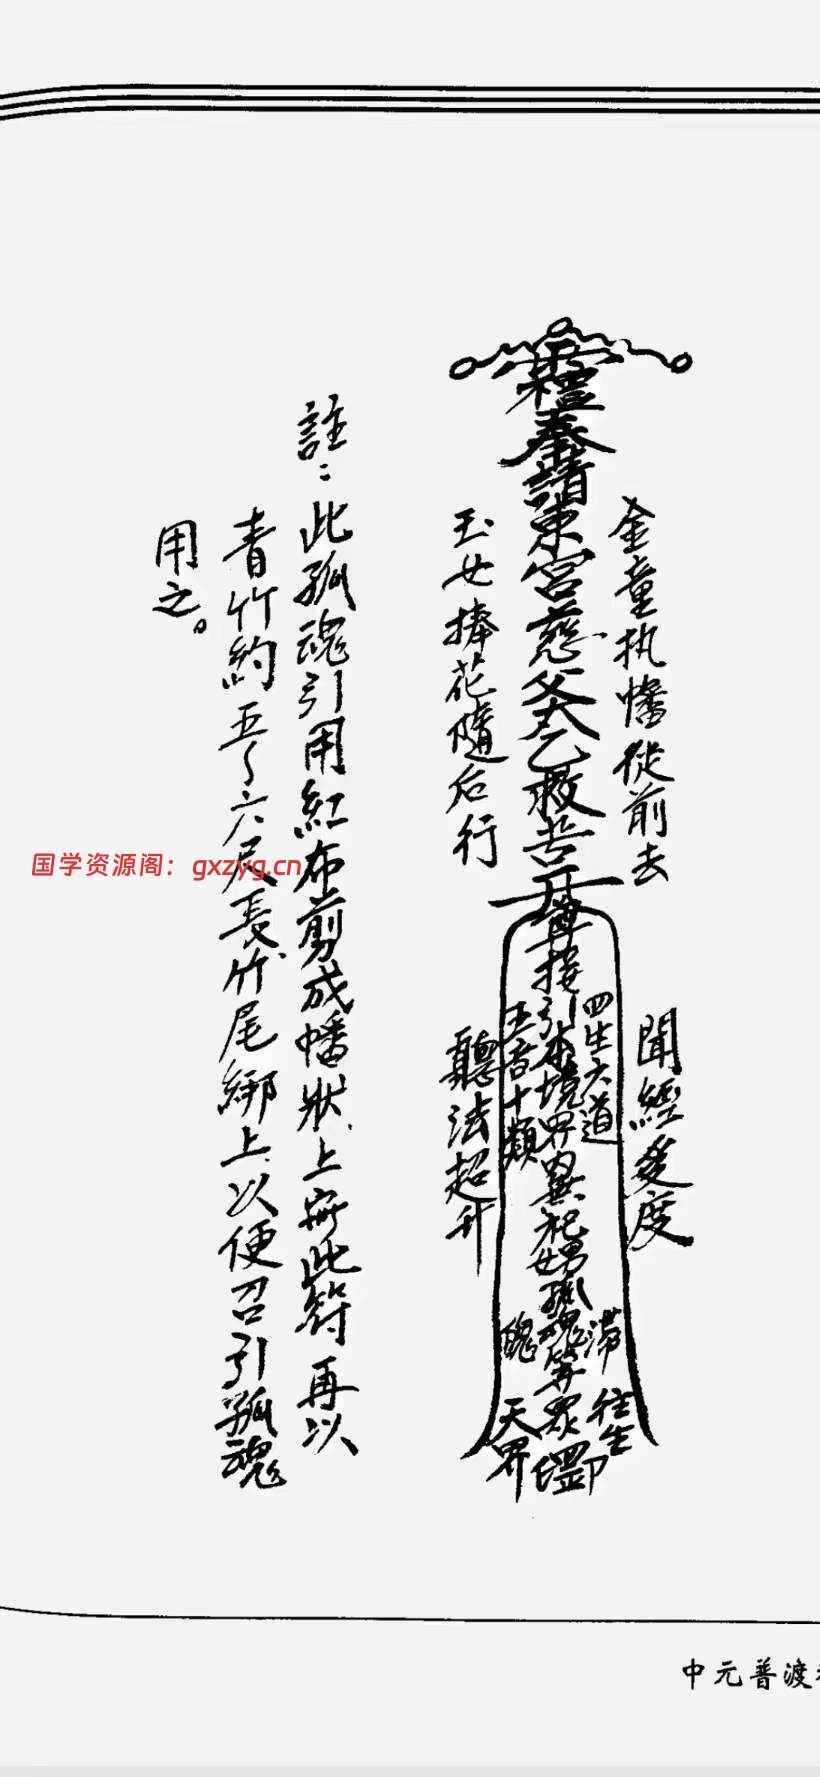 金童执幡從前去
奉請東宮慈父太乙救苦尊接引本境界內無祀男孤魂等眾
玉女捧花隨后行
四生六道
五音十類
聞經受度
聽法超升
滯
魄
往生
天界
註：此孤魂引用紅布剪成幡狀、上符此符再以
青竹約五～六尺長、竹尾綁上、以便召引孤魂
用之。
国学资源阁：gxzyg.cn
中元普渡